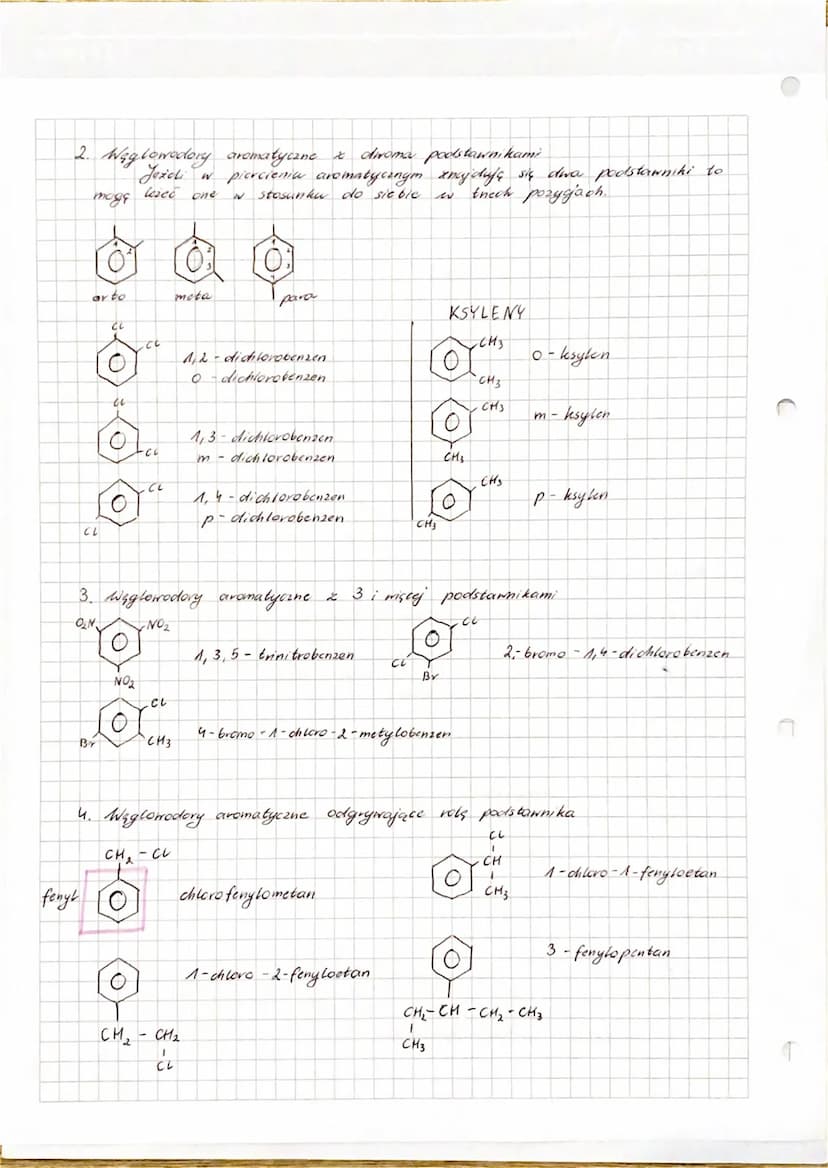 2. Węglowodory aromatyczne z dwoma podstawnikami
Jeżeli w pierścieniu aromatycznym znajdują się dwa podstawniki to
mogą leżeć one w stosunku do siebie w trzech pozycjach.
1 2
1 2 3
1 2 3 4
orto meta para
KSYLENY
Cl
Cl
1,2 - dichlorobenzen
o - dichlorobenzen
CH3
CH3
o - ksylen
Cl
Cl
1,3 - dichlorobenzen
m - dichlorobenzen
CH3
CH3
m - ksylen
Cl
Cl
1,4 - dichlorobenzen
p - dichlorobenzen
CH3
CH3
p - ksylen
3. Węglowodory aromatyczne z 3 i więcej podstawnikami
O2N NO2
NO2
1,3,5 - trinitrobenzen
Cl
Cl
Br
2,-bromo - 1,4-dichlorobenzen
Cl
Br CH3
4-bromo-1-chloro-2-metylobenzen
4. Węglowodory aromatyczne odgrywające rolę podstawnika
CH2 - Cl
fenyl
chlorofenylometan
Cl
CH
CH3
1-chloro-1-fenyloetan
1-chloro-2-fenyloetan
CH2 - CH2
Cl
3 - fenylopentan
CH2-CH-CH2-CH3
CH3